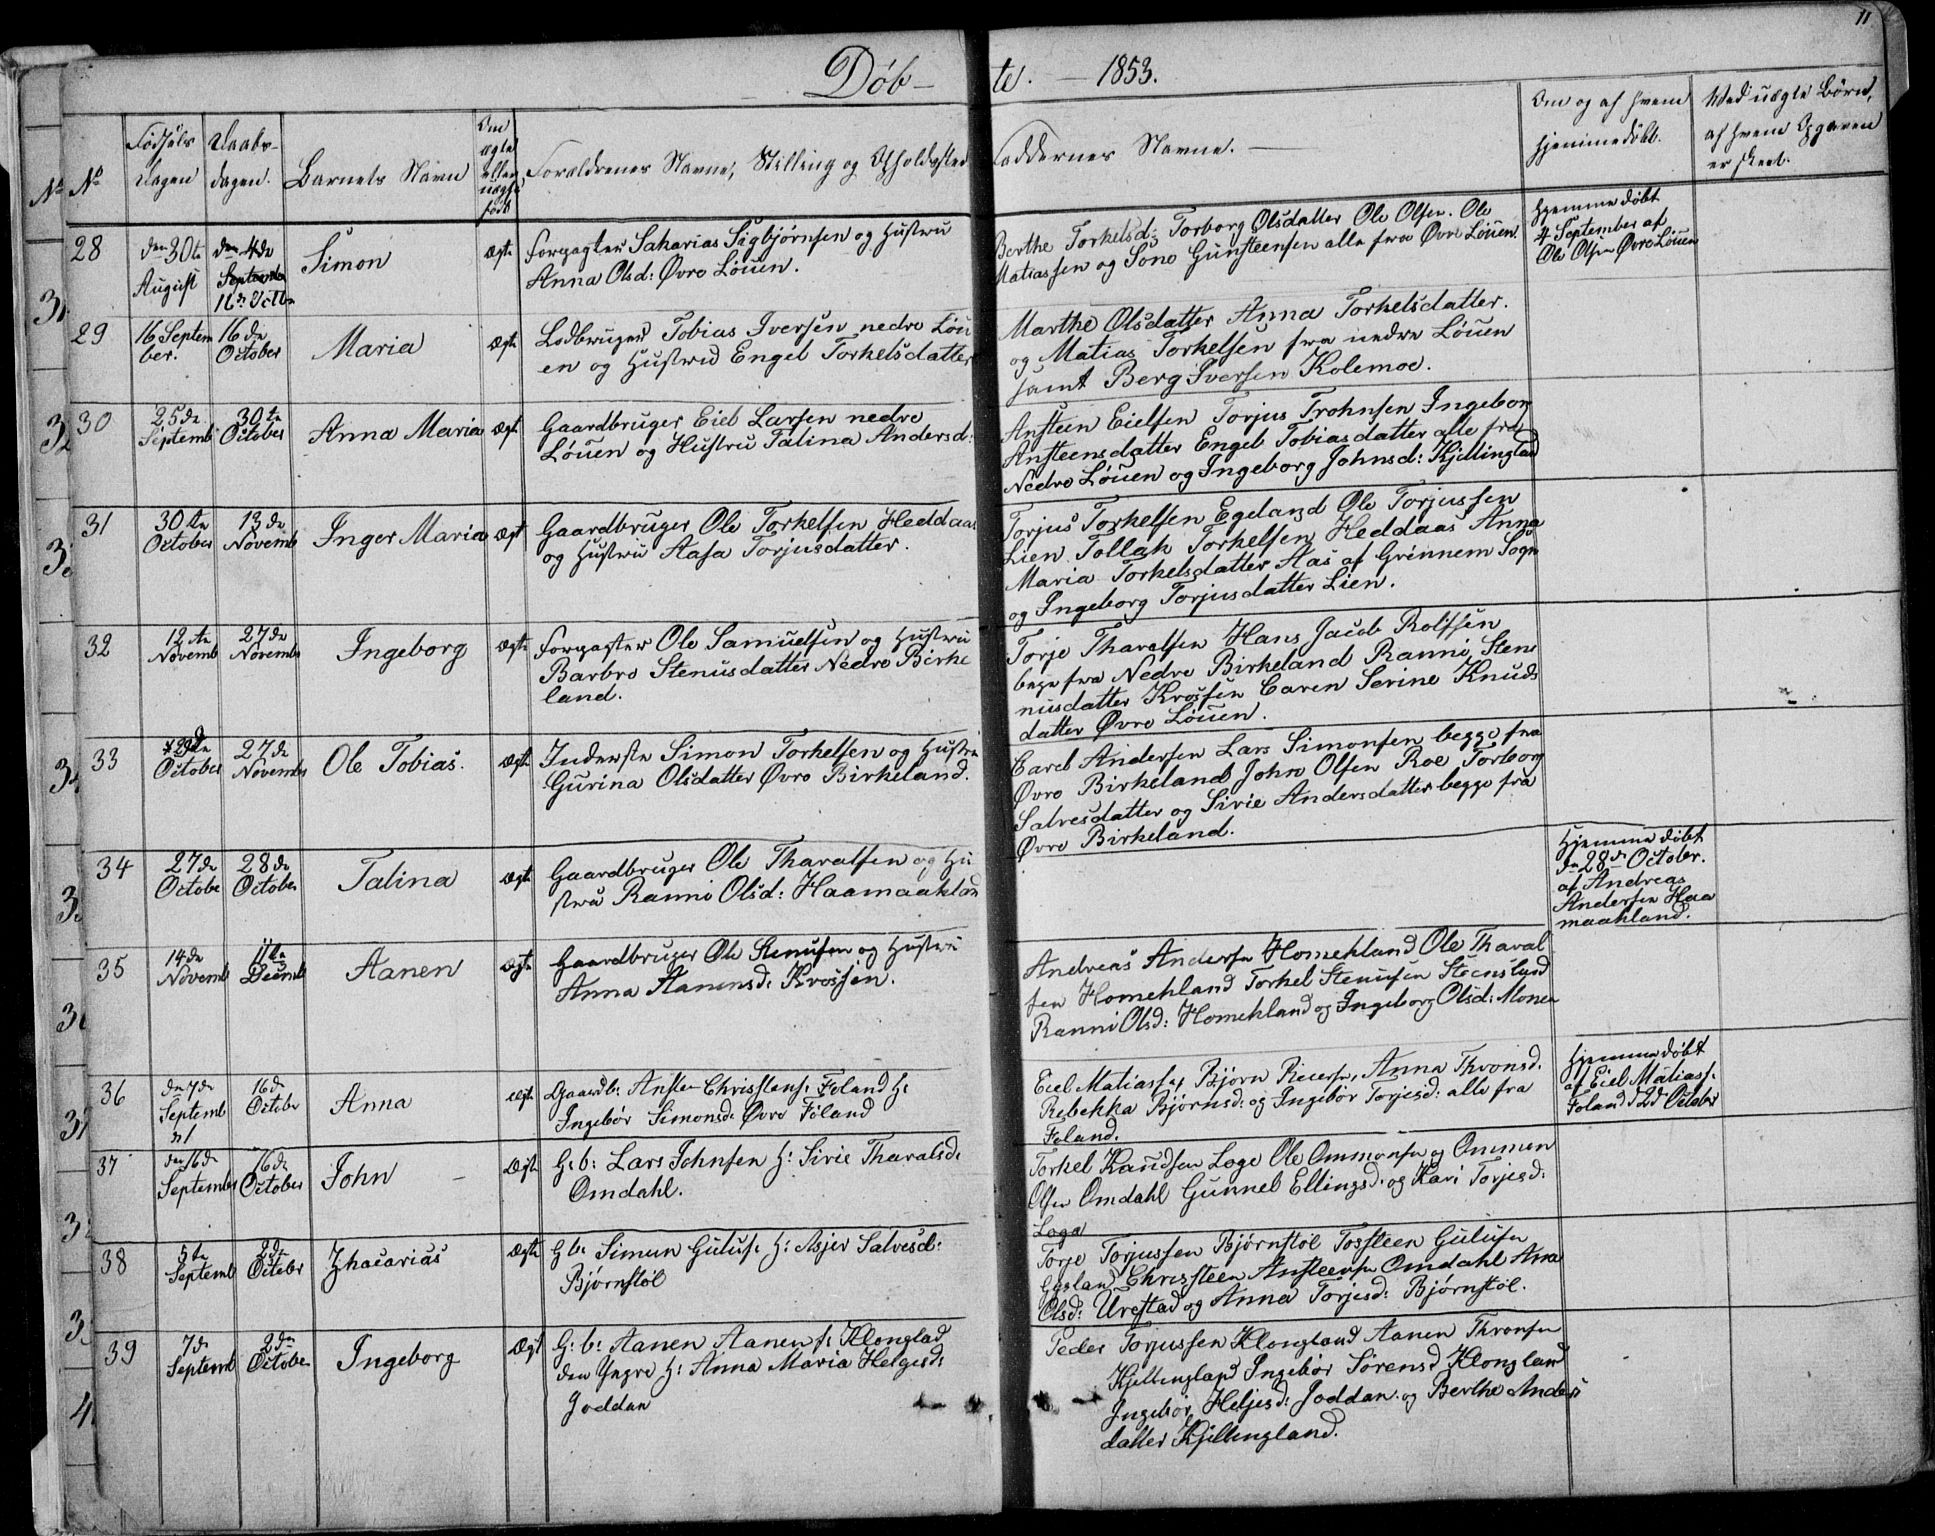 11
Døb-
te. — 1853.
No
No
Fødsels
Dagen
Daabs-
dagen.
Barnets Navn
Om
ægte
eller
uægte
født
Forældrenes Navne, Stilling og Opholdssted
Faddernes Navne. —
Om og af hvem
hjemmedøbt.
Ved uægte Børn,
af hvem Opgaven
er skeet.
28
den 30te
August
den 4de
September
16de Octbr
Simon
ægte
Forpagter Sakarias Sigbjørnsen og Hustru
Anna Olsd: Øvre Løuen.
Berthe Torkelsd: Torborg Olsdatter Ole Olsen. Ole
Matiassen og Sone Gunsteensen alle fra Øvre Løuen
Hjemmedøbt
4 September af
Ole Olsen Øvre Løuen
29
16 Septem
ber.
16de
October
Maria
ægte
Lodbruger Tobias Iversen nedre Løu
en og Hustrue Engel Torkelsdatter
Marthe Olsdatter Anna Torkelsdatter.
og Matias Torkelsen fra nedre Løuen
samt Berg Iversen Kolemoe.
30
25de
Septemb
30te
October
Anna Maria
ægte
Gaardbruger Eiel Larsen nedre
Løuen og Hustru Talina Andersd:
Ansteen Eielsen Torjus Trohnsen Ingeborg
Ansteensdatter Engel Tobiasdatter alle fra
Nedre Løuen og Ingeborg Johnsd: Kjellingland
31
30te
October
13de
Novemb
Inger Maria
ægt
Gaardbruger Ole Torkelsen Heddaas
og Hustru Aasa Torjusdatter.
Torjus Torkelsen Egeland Ole Torjussen
Lien Tollak Torkelsen Heddaas Anna
Maria Torkelsdatter Aas af Grinnem Sogn
og Ingeborg Torjusdatter Lien.
32
12te
Novemb
27de
Novembr
Ingeborg
ægte
Forpagter Ole Samuelsen og Hustru
Barbro Stenusdatter Nedre Birke
land.
Torje Tharalsen Hans Jacob Rolfsen
bege fra Nedre Birkeland Ranni Ste
nusdatter Krossen Caren Serine Knuds
datter Øvre Løuen.
33
October
27de
Novembr
Ole Tobias.
ægte
Inderste Simon Torkelsen og Hustru
Gurina Olsdatter Øvre Birkeland.
Carel Andersen Lars Simonsen begge fra
Øvre Birkeland John Olsen Roe Torborg
Salvesdatter og Sirie Andersdatter begge fra
Øvre Birkeland.
34
27de
Octobe
28de
October
Talina
ægte
Gaardbruger Ole Tharalsen og Hu
stru Ranni Olsd: Haamaaklan
Hjemmedøbt
den 28de October.
af Andreas
Andersen Haa
maakland.
35
14de
Novemb
11te
Decemb
Aanen
ægte
Gaardbruger Ole Stenusen og Hustru
Anna Aanensd: Krossen.
Andreas Andersen Homekland Ole Tharal
sen Homekland Torkel Stenusen Steensland
Ranni Olsd: Homekland og Ingeborg Olsd: Monen
36
den 7de
Septemb
16de
Octobr
Anna
ægte
Gaardb: Ansten Christens: Foland H:
Ingebor Simonsd: Øvre Foland
Eiel Matiassen, Bjørn Reiersen, Anna Thronsd.
Rebekka Bjørnsd: og Ingebor Torjesd: alle fra
Foland.
Hjemmedøbt
af Eiel Matiass:
Foland d 2d October
37
den 16de
September
16de
October
John
ægte
G: b: Lars Johnsen H: Sirie Tharalsd:
Omdahl.
Torkel Knudsen Loge Ole Ommonsen og Ommon
Olsen Omdahl Gunnel Ellingsd. og Kari Torjesd:
Loga
38
5te
Septemb
2de
Octobr
Zhacarias
ægte
Gb: Simun Gulus: H: Asjer Salvesd:
Bjørnstøl
Torje Torjussen Bjørnstøl Tosteen Gulusen
Egsland Christeen Ansteensen Omdahl Ana
Olsd: Urestad og Anna Torjesd: Bjørnstøl.
39
7de
Septemb
2den
October
Ingeborg
ægt
G: b: Aanen Aanens: Klonglad
den Yngre H: Anna Maria Helgesd:
Joddan
Peder Torjussen Klongland Aanen Thronsen
Kjellingland Ingebor Sørensd Klongland
Ingebor Heljesd: Joddan. og Berthe Anders
datter Kjellingland.